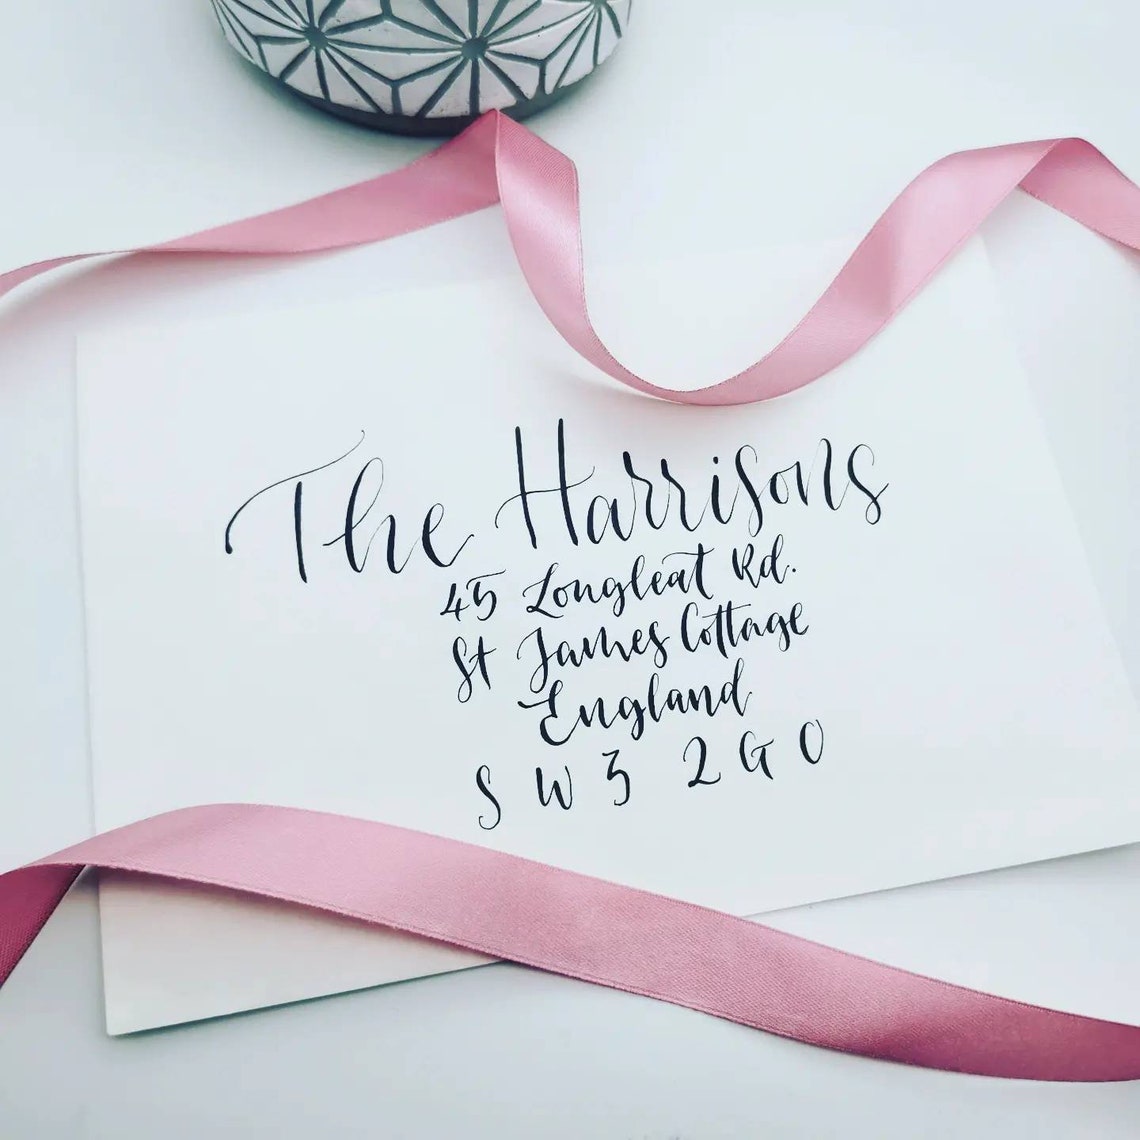 The Harrisons
45 Longleat Rd.
St James Cottage
England
SW3 2GO